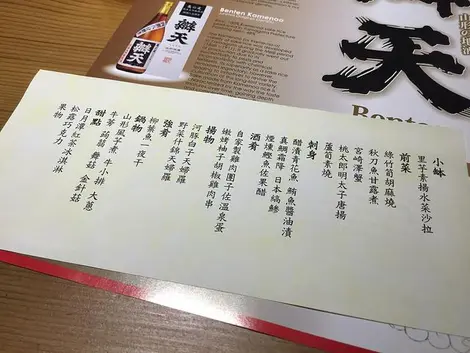 小缽
里芋素揚水菜沙拉
前菜
綠竹筍胡麻燒
秋刀魚甘露煮
宮崎澤蟹
桃太郎明太子唐揚
蘆筍素燒
刺身
醋漬青花魚 鮪魚醬油漬
真鯛霜降 日本縞鰺
煙燻鰹魚佐果醋
酒肴
自家製雞肉團子佐溫泉蛋
嫩烤柚子胡椒雞肉串
揚物
河豚白子天婦羅
野菜什錦天婦羅
強肴
柳葉魚一夜干
鍋物
山形風芋煮 牛小排 大蔥
牛蒡 蒟蒻 舞菇 金針菇
甜點
日月潭紅茶冰淇淋
松露巧克力
果物
辯天
Benten
天